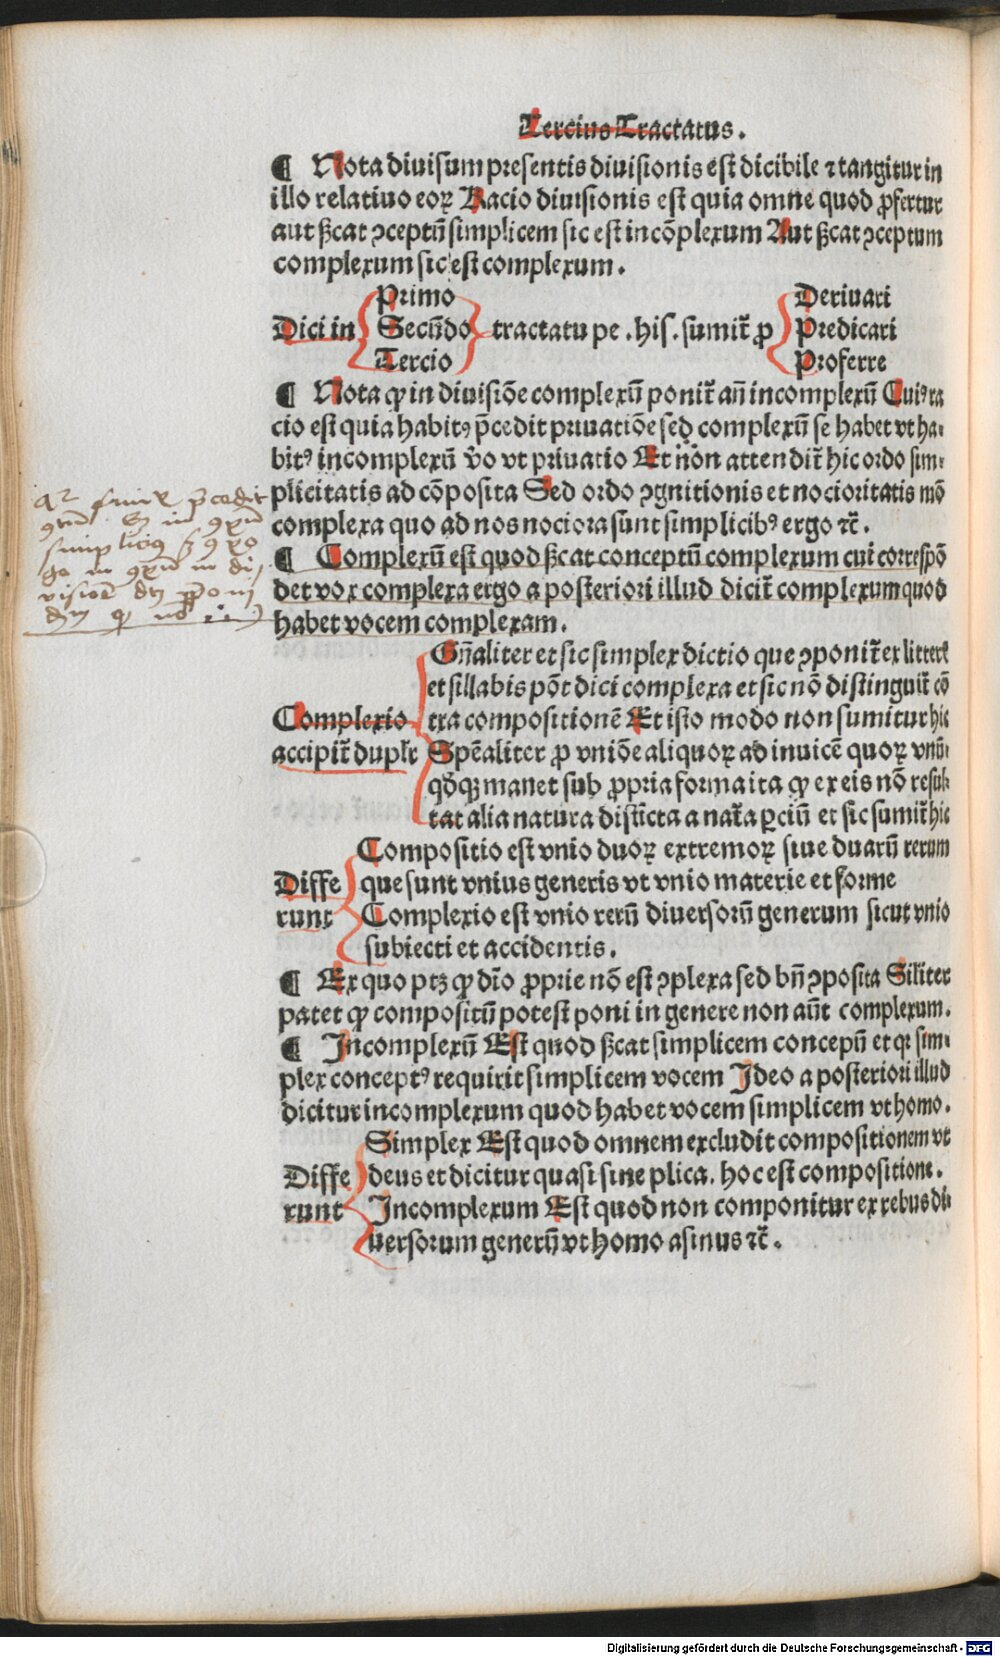 Tercius Tractatus.
¶ Nota diuisum presentis diuisionis est dicibile ⁊ tangitur in
illo relatiuo eoꝝ Racio diuisionis est quia omne quod ꝓfertur
aut ßcat ꝯceptū simplicem sic est incōplexum Aut ßcat ꝯceptum
complexum sic est complexum.
Dici in
Primo
Secūdo
Tercio
tractatu pe .his. sumit̄ ꝓ
Deriuari
Predicari
Proferre
¶ Nota ꝙ in diuisiōe complexū ponit̄ an̄ incomplexū Cuiꝰ ra
cio est quia habitꝰ p̄cedit priuatiōe sed complexū se habet vt ha⸗
bitꝰ incomplexū v̄o vt priuatio Et non attendit̄ hic ordo sim⸗
plicitatis ad cōposita Sed ordo ꝯgnitionis et nocioritatis mō
complexa quo ad nos nociora sunt simplicibꝰ ergo ⁊c̄.
¶ Complexū est quod ßcat conceptū complexum cui correspō
det vox complexa ergo a posteriori illud dicit̄ complexum quod
habet vocem complexam.
Complexio
accipit̄ duplr̄
Gn̄aliter et sic simplex dictio que ꝯponit̄ ex litter̄
et sillabis pōt dici complexa et sic nō distinguit̄ cō
tra compositionē Et isto modo non sumitur hic
Spēaliter ꝓ vniōe aliquoꝝ ad inuicē quoꝝ vnū⸗
qd̄qꝫ manet sub ꝓpria forma ita ꝙ ex eis nō resul
tat alia natura distīcta a nat̄a ꝑciū et sic sumit̄ hic
Diffe
runt
Compositio est vnio duoꝝ extremoꝝ siue duarū rerum
que sunt vnius generis vt vnio materie et forme
Complexio est vnio rerū diuersorū generum sicut vnio
subiecti et accidentis.
¶ Ex quo ptꝫ ꝙ dīo ꝓprie nō est ꝯplexa sed bn̄ ꝯposita Siliter
patet ꝙ compositū potest poni in genere non aūt complexum.
¶ Incomplexū Est quod ßcat simplicem concepū et qꝛ sim⸗
plex conceptꝰ requirit simplicem vocem Ideo a posteriori illud
dicitur incomplexum quod habet vocem simplicem vt homo.
Diffe
runt
Simplex Est quod omnem excludit compositionem vt
deus et dicitur quasi sine plica. hoc est compositione.
Incomplexum Est quod non componitur ex rebus di
uersorum generū vt homo asinus ⁊c̄.
Digitalisierung gefördert durch die Deutsche Forschungsgemeinschaft - DFG